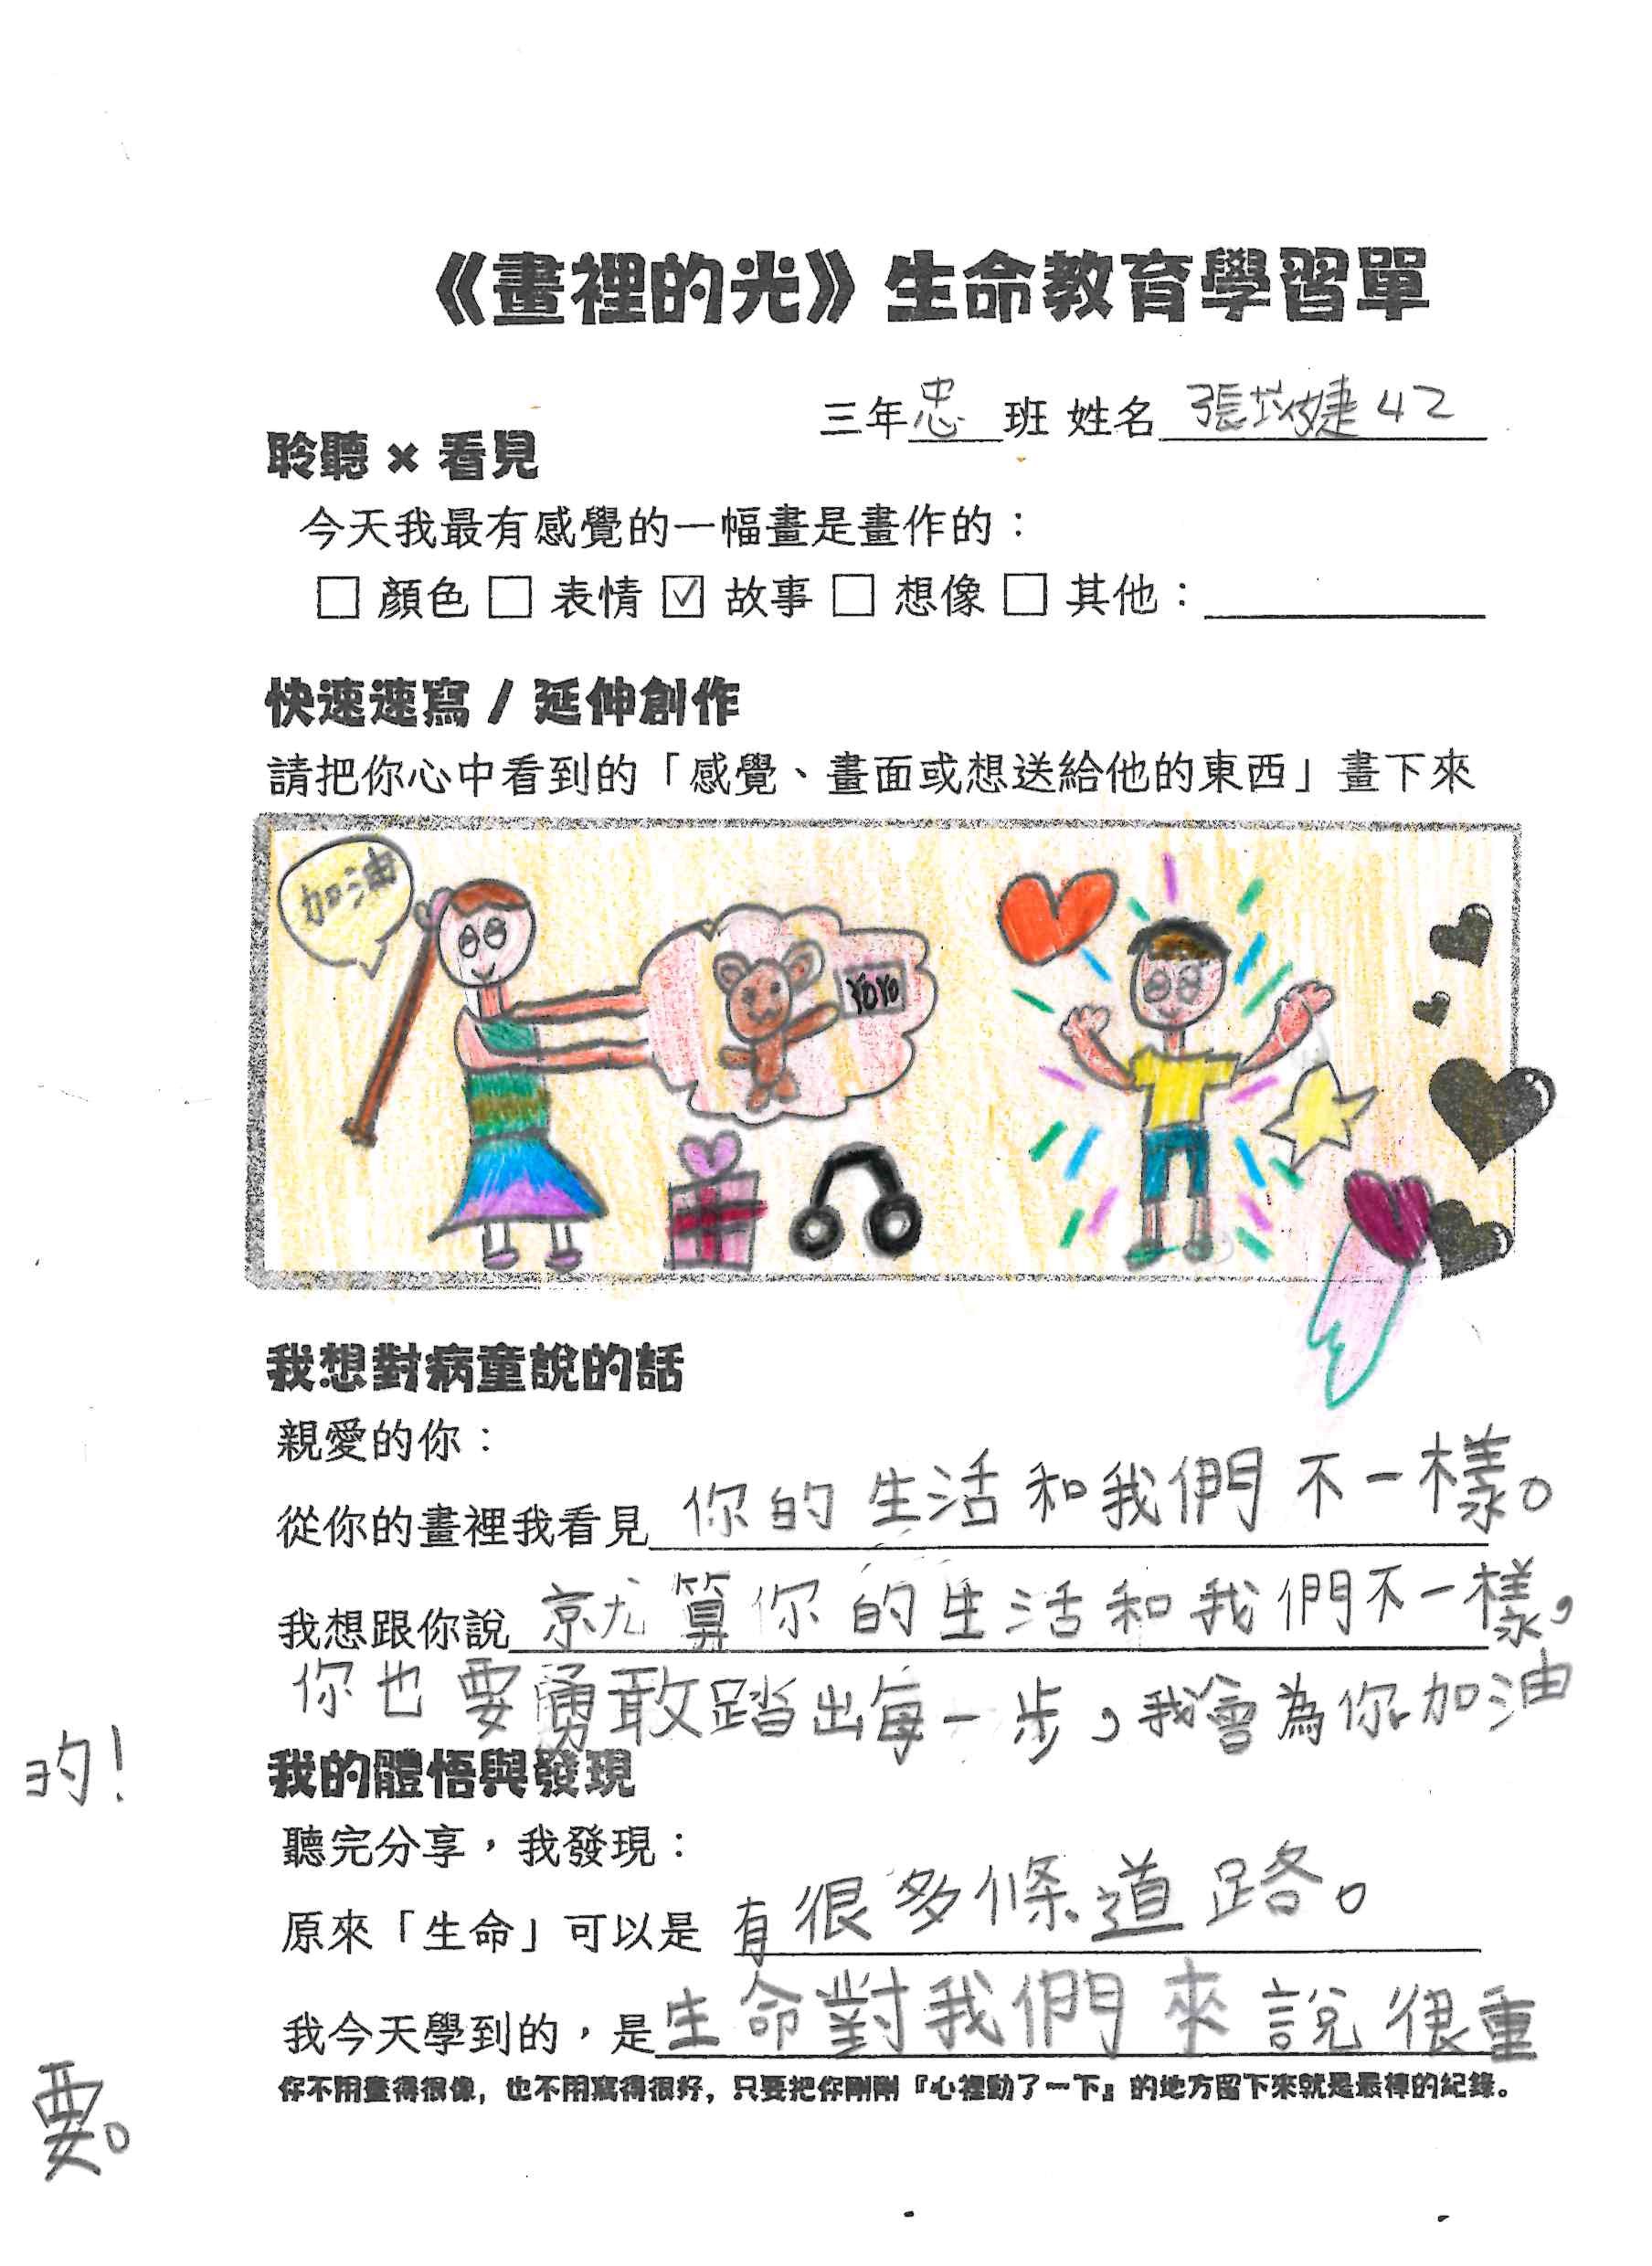 《畫裡的光》生命教育學習單
三年忠班 姓名 張婕 42
聆聽 × 看見
今天我最有感覺的一幅畫是畫作的：
□ 顏色 □ 表情 ☑ 故事 □ 想像 □ 其他：
快速速寫 / 延伸創作
請把你心中看到的「感覺、畫面或想送給他的東西」畫下來
加油
YOYO
我想對病童說的話
親愛的你：
從你的畫裡我看見 你的生活和我們不一樣。
我想跟你說 就算你的生活和我們不一樣，
你也要勇敢踏出每一步，我會為你加油
的！
我的體悟與發現
聽完分享，我發現：
原來「生命」可以是 有很多條道路。
我今天學到的，是生命對我們來說很重
要。
你不用畫得很像，也不用寫得很好，只要把你剛剛『心裡動了一下』的地方留下來就是最棒的紀錄。